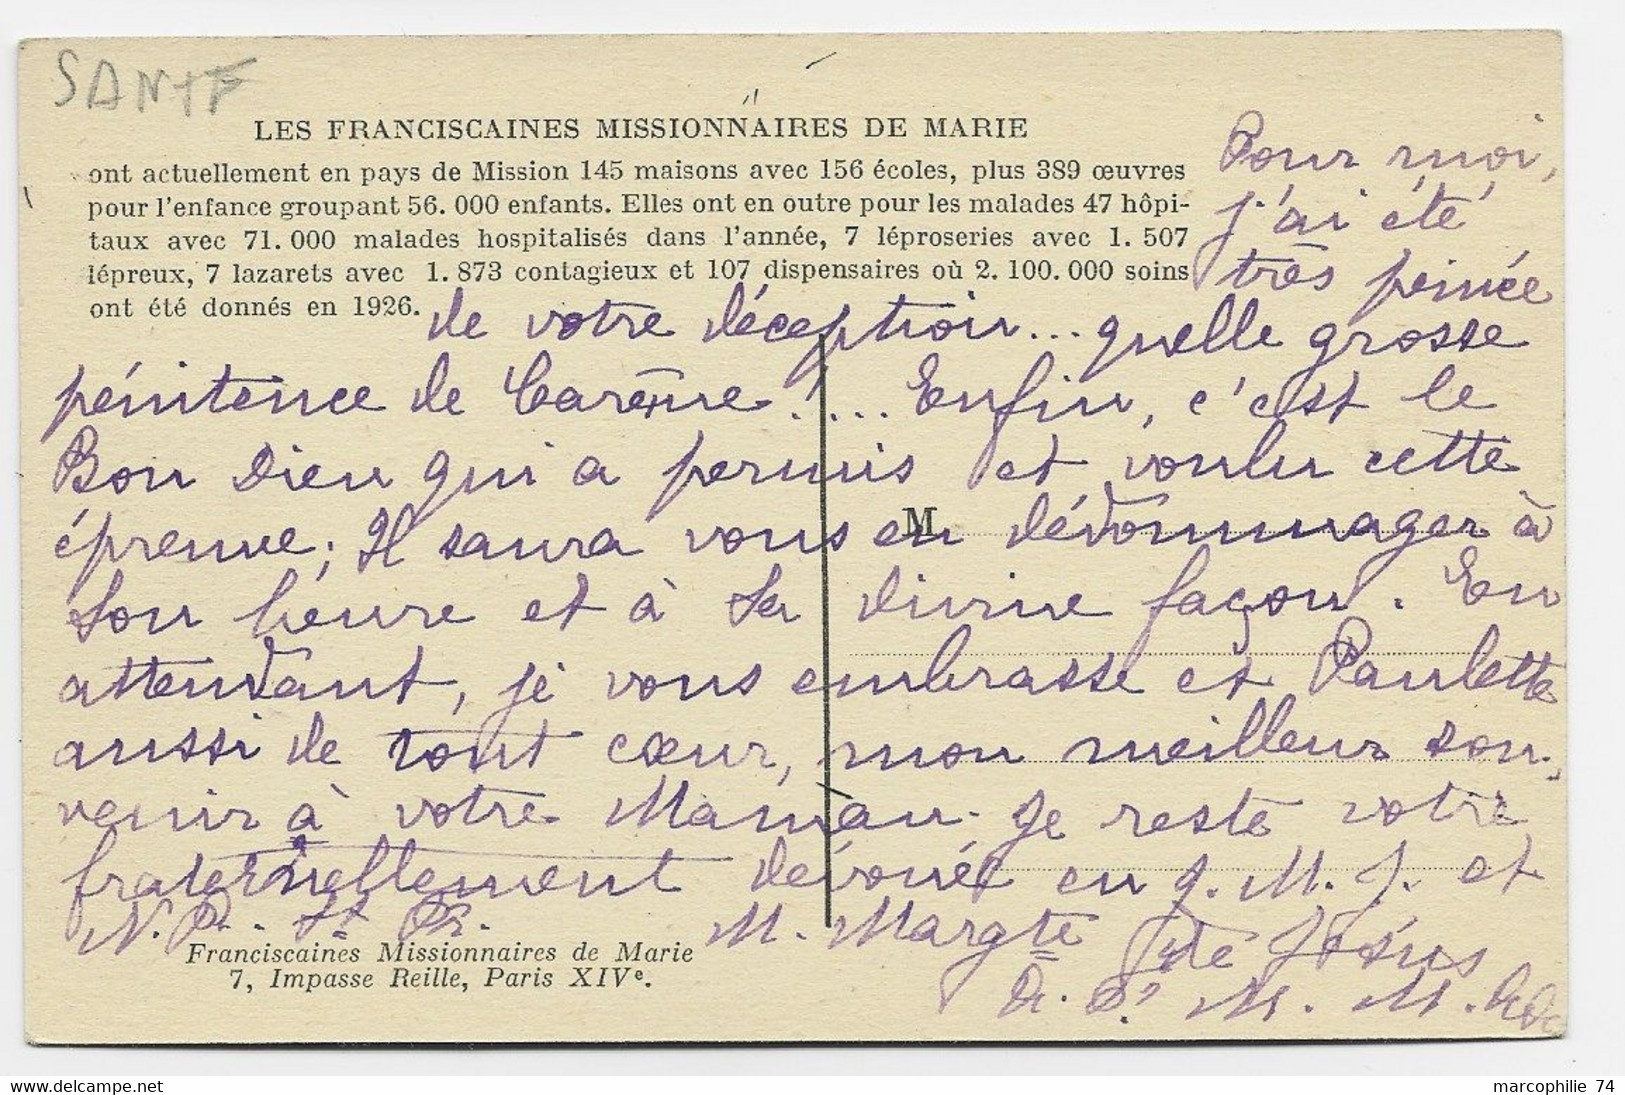 SANTE
LES FRANCISCAINES MISSIONNAIRES DE MARIE
ont actuellement en pays de Mission 145 maisons avec 156 écoles, plus 389 œuvres
pour l'enfance groupant 56. 000 enfants. Elles ont en outre pour les malades 47 hôpi-
taux avec 71. 000 malades hospitalisés dans l'année, 7 léproseries avec 1. 507
lépreux, 7 lazarets avec 1. 873 contagieux et 107 dispensaires où 2. 100. 000 soins
ont été donnés en 1926.
Pour moi,
j'ai été
très peinée
de votre déception... quelle grosse
pénitence de Carême !... Enfin, c'est le
Bon Dieu qui a permis et voulu cette
épreuve; Il saura vous en dédommager à
Son heure et à Sa divine façon. En
attendant, je vous embrasse et Paulette
aussi de tout cœur, mon meilleur sou-
venir à votre Maman. Je reste votre
fraternellement dévouée en J. M. J. et
N. P. St Fr. M. Margte de Jésus
M
Franciscaines Missionnaires de Marie
7, Impasse Reille, Paris XIVe.
M. M.
marcophilie 74
www.delcampe.net